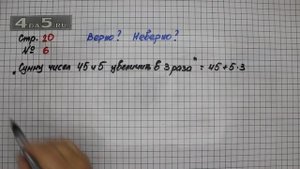 4DA5.RU
Стр. 20 Верно? Неверно?
№ 6
"Сумму чисел 45 и 5 увеличить в 3 раза" = 45+5·3